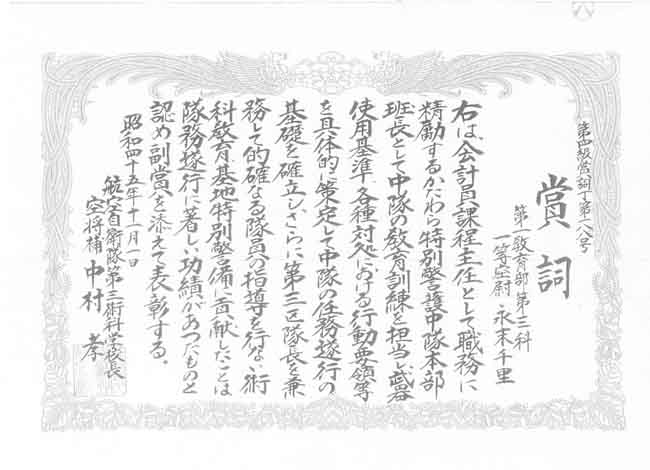 第四級賞詞丁第一八号
賞詞
第一教育部第三科
一等空尉 永末千里
右は、会計員課程主任として職務に
精励するかたわら特別警護中隊本部
班長として中隊の教育訓練を担当し武器
使用基準、各種対処における行動要領等
を具体的に策定して中隊の任務遂行の
基礎を確立し、さらに第三区隊長を兼
務して的確なる隊員の指導を行ない術
科教育基地特別警備に貢献したことは
隊務遂行に著しい功績があつたものと
認め副賞を添えて表彰する。
昭和四十五年十一月一日
航空自衛隊第三術科学校長
空将補 中村 孝